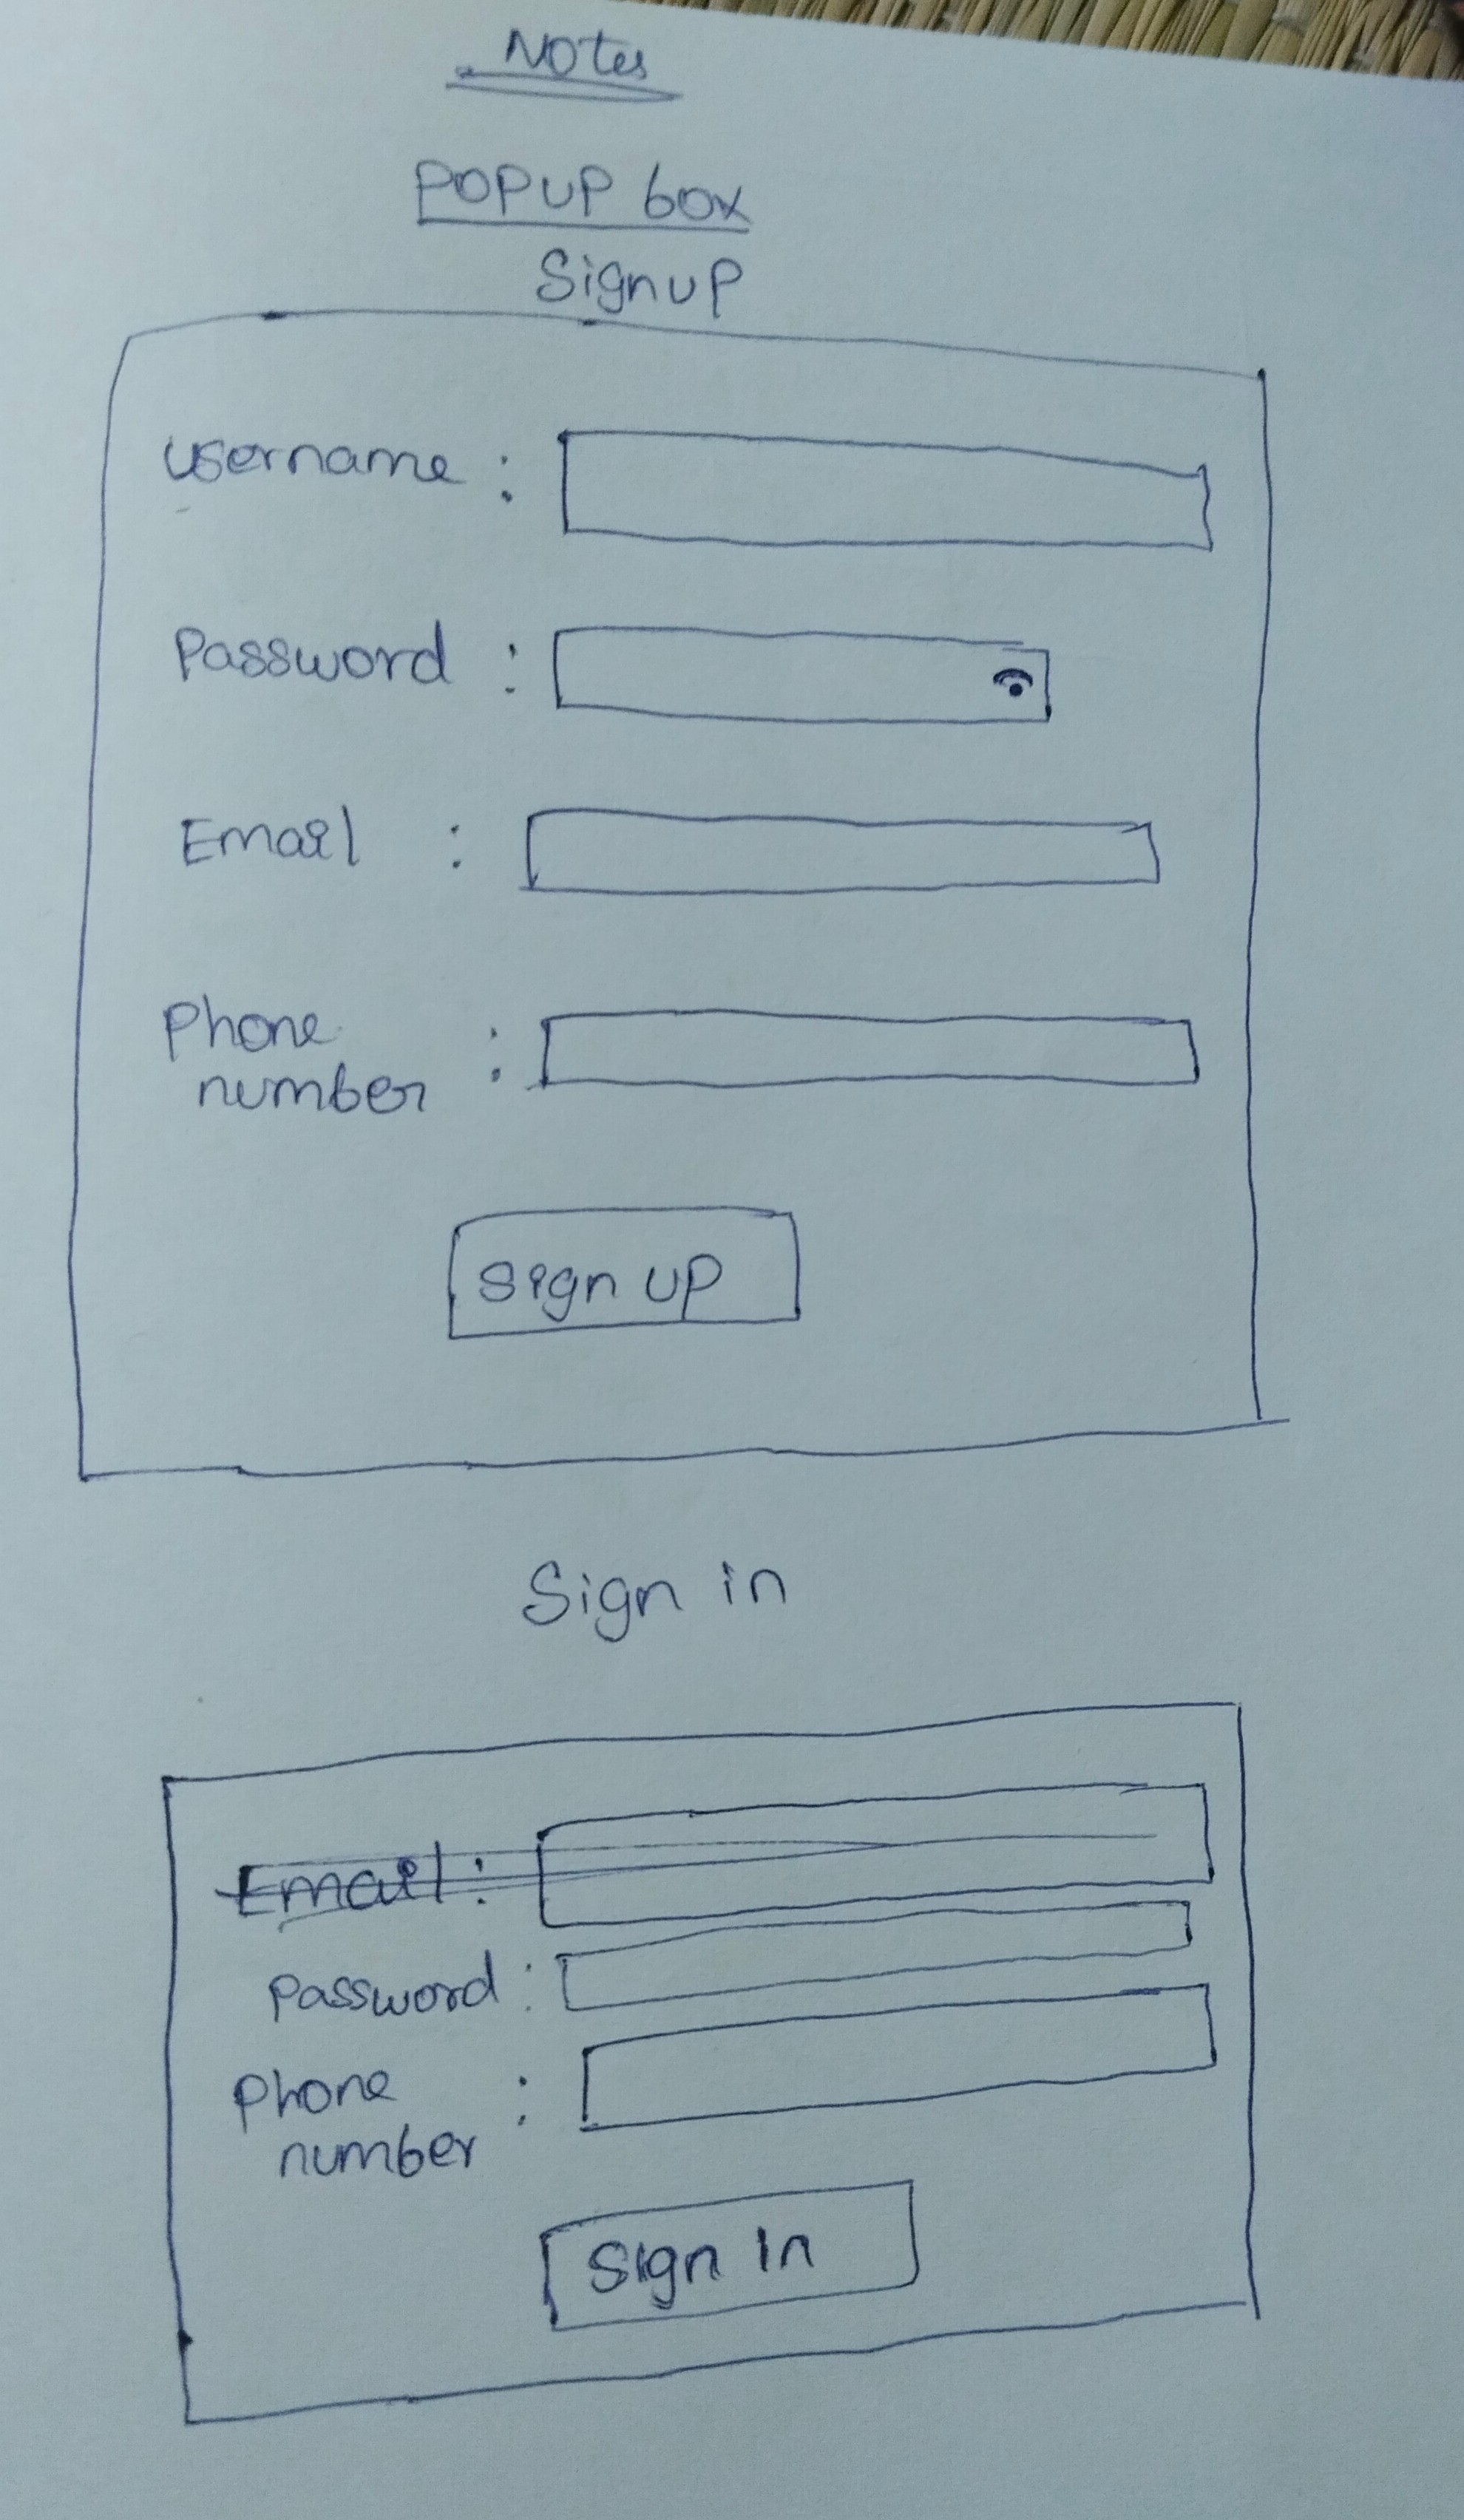 Notes
POPUP box
Signup
username :
Password :
Email :
Phone
number :
Sign up
Sign in
Email :
Password :
Phone
number :
Sign In